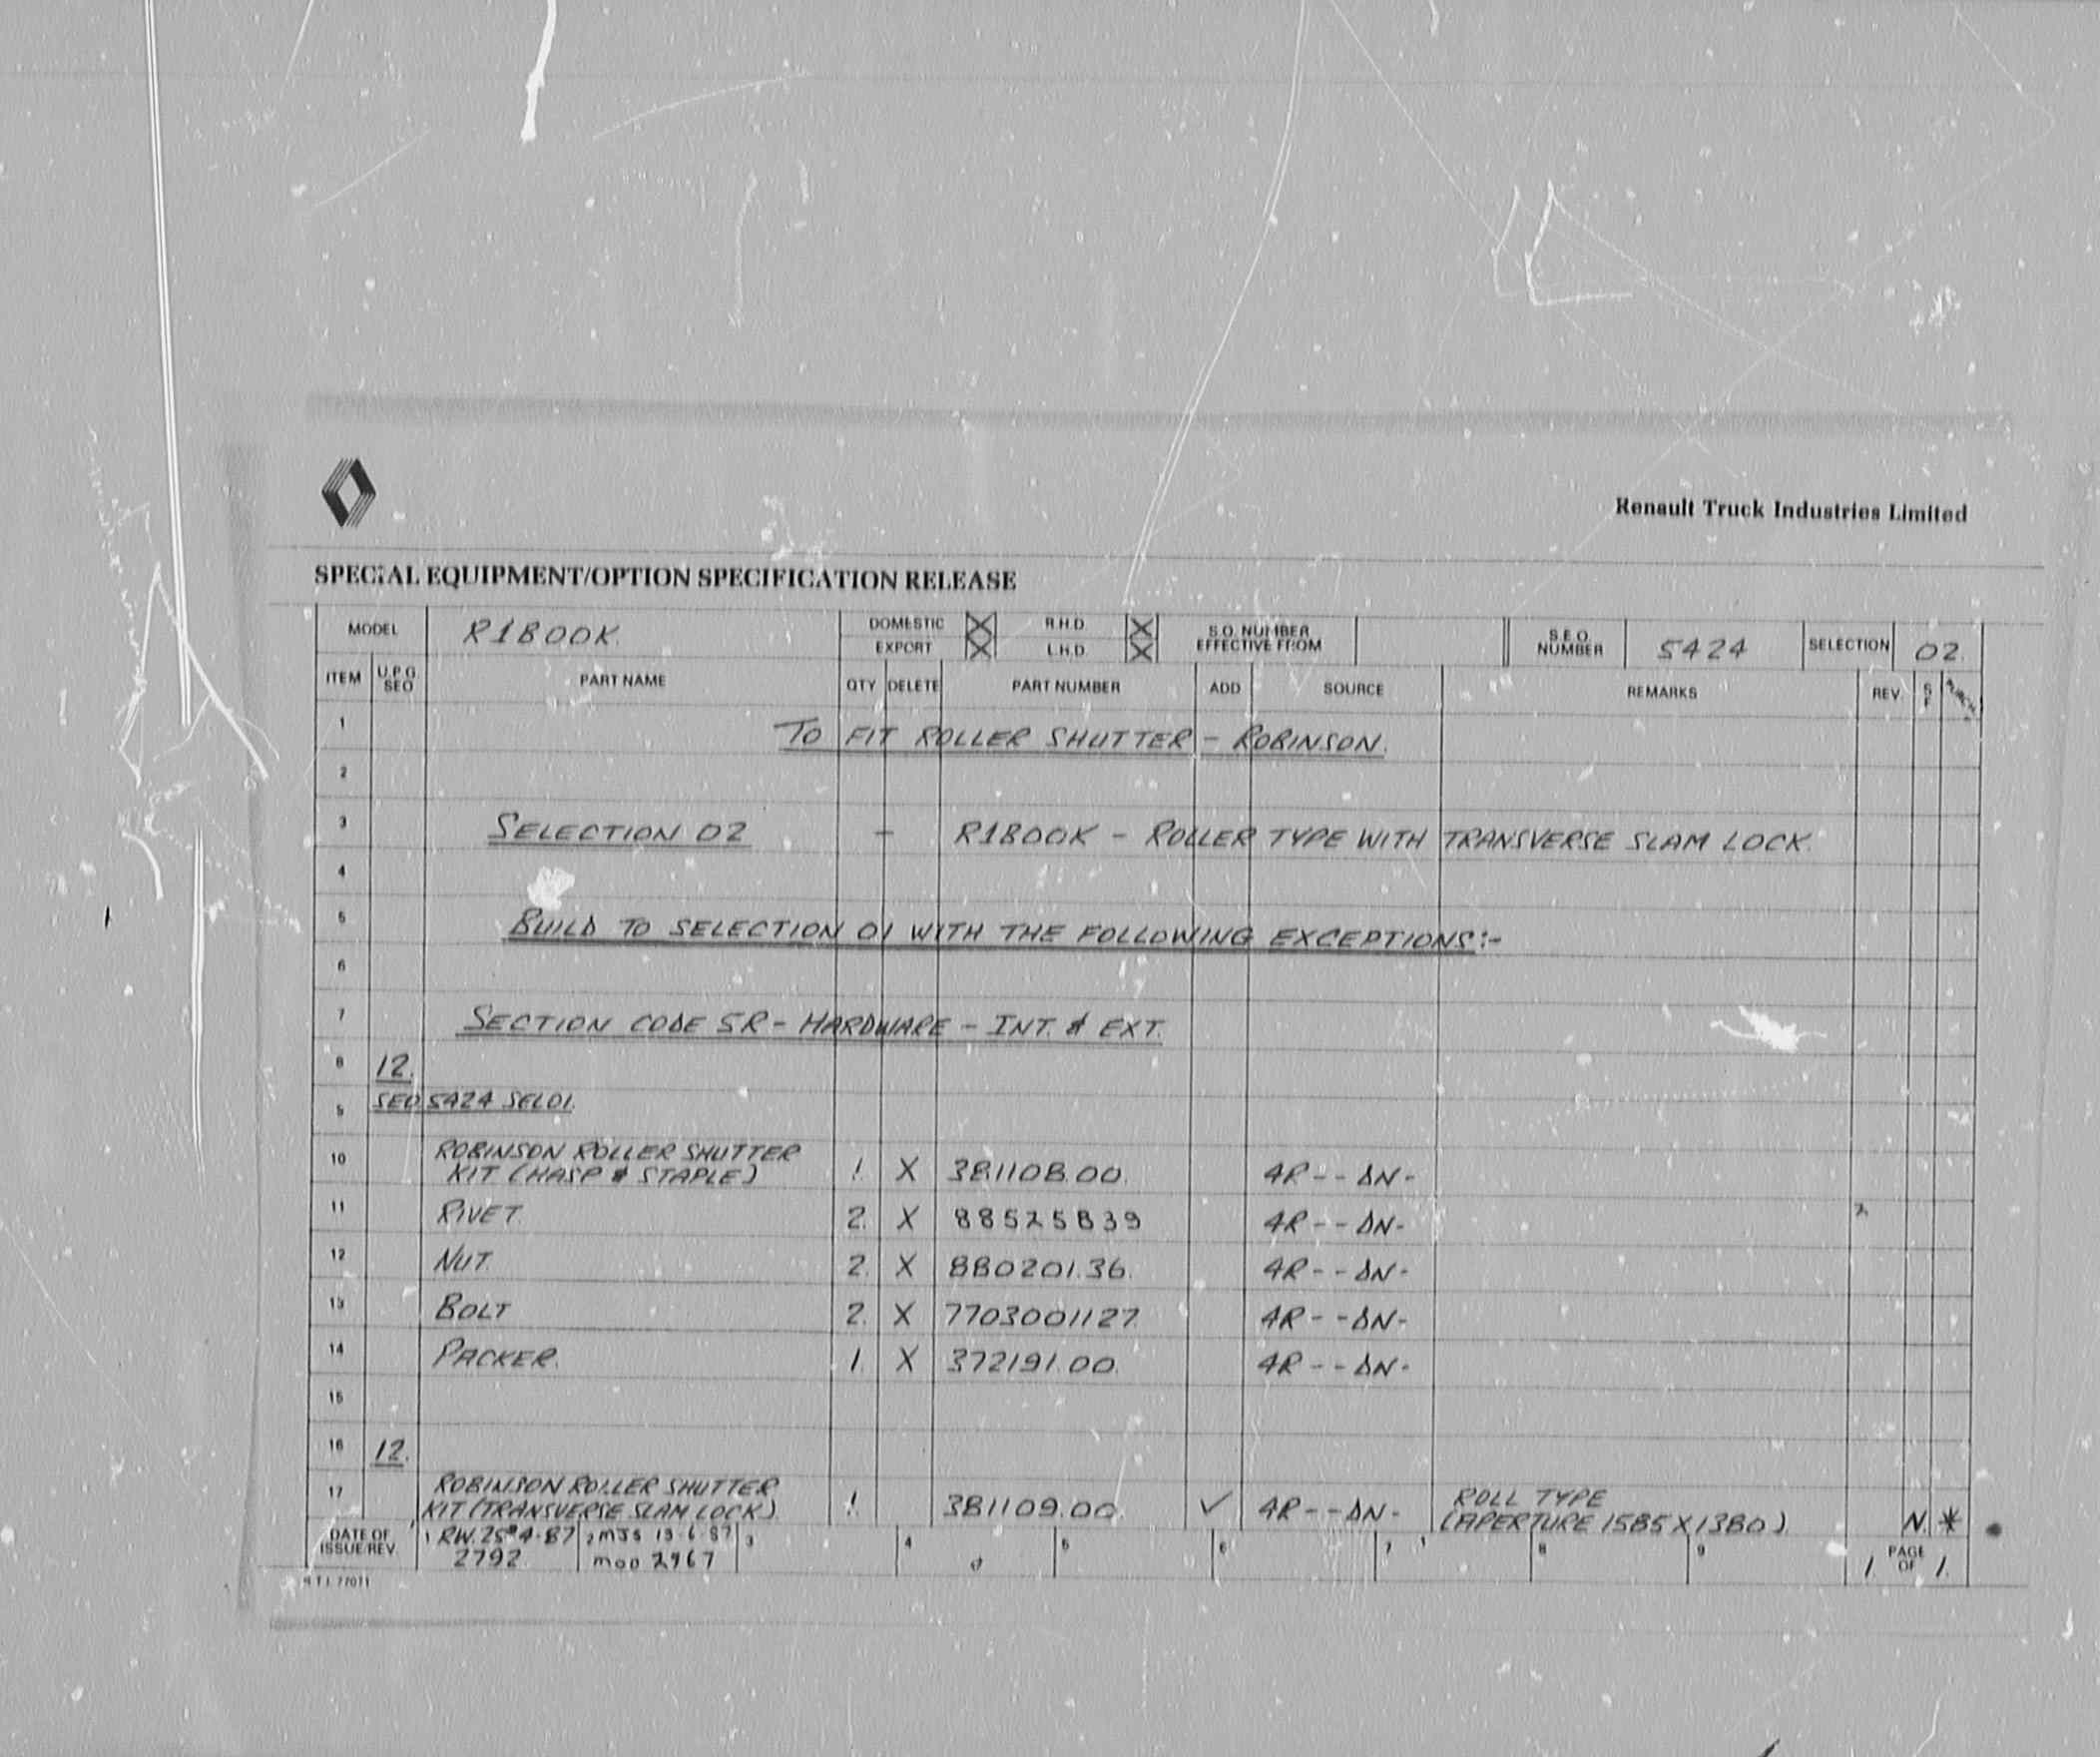 Renault Truck Industries Limited
SPECIAL EQUIPMENT/OPTION SPECIFICATION RELEASE
MODEL R1800K. DOMESTIC X R.H.D. X S.O. NUMBER EFFECTIVE FROM S.E.O. NUMBER 5424 SELECTION 02.
EXPORT X L.H.D. X
ITEM U.P.G. SEO PART NAME QTY DELETE PART NUMBER ADD SOURCE REMARKS REV S F
1 TO FIT ROLLER SHUTTER - ROBINSON.
2
3 SELECTION 02 - R1800K - ROLLER TYPE WITH TRANSVERSE SLAM LOCK.
4
5 BUILD TO SELECTION 01 WITH THE FOLLOWING EXCEPTIONS:-
6
7 SECTION CODE 5R - HARDWARE - INT. & EXT.
8 12.
9 SEO 5424 SEL01.
10 ROBINSON ROLLER SHUTTER
KIT (HASP & STAPLE) 1 X 381108.00. 4R--DN-
11 RIVET. 2. X 88525839 4R--DN- 2
12 NUT. 2. X 880201.36. 4R--DN-
13 BOLT 2. X 7703001127. 4R--DN-
14 PACKER. 1. X 372191.00. 4R--DN-
15
16 12.
17 ROBINSON ROLLER SHUTTER ROLL TYPE
KIT (TRANSVERSE SLAM LOCK) 1. 381109.00. ✓ 4R--DN- (APERTURE 1585 X 1380) N *
DATE OF ISSUE/REV. 1 RW. 25-4-87 2 MJS 13-6-87 3 4 5 6 7 8 9 1 PAGE OF 1.
2792 MOD 2967
R.T.I. 77011